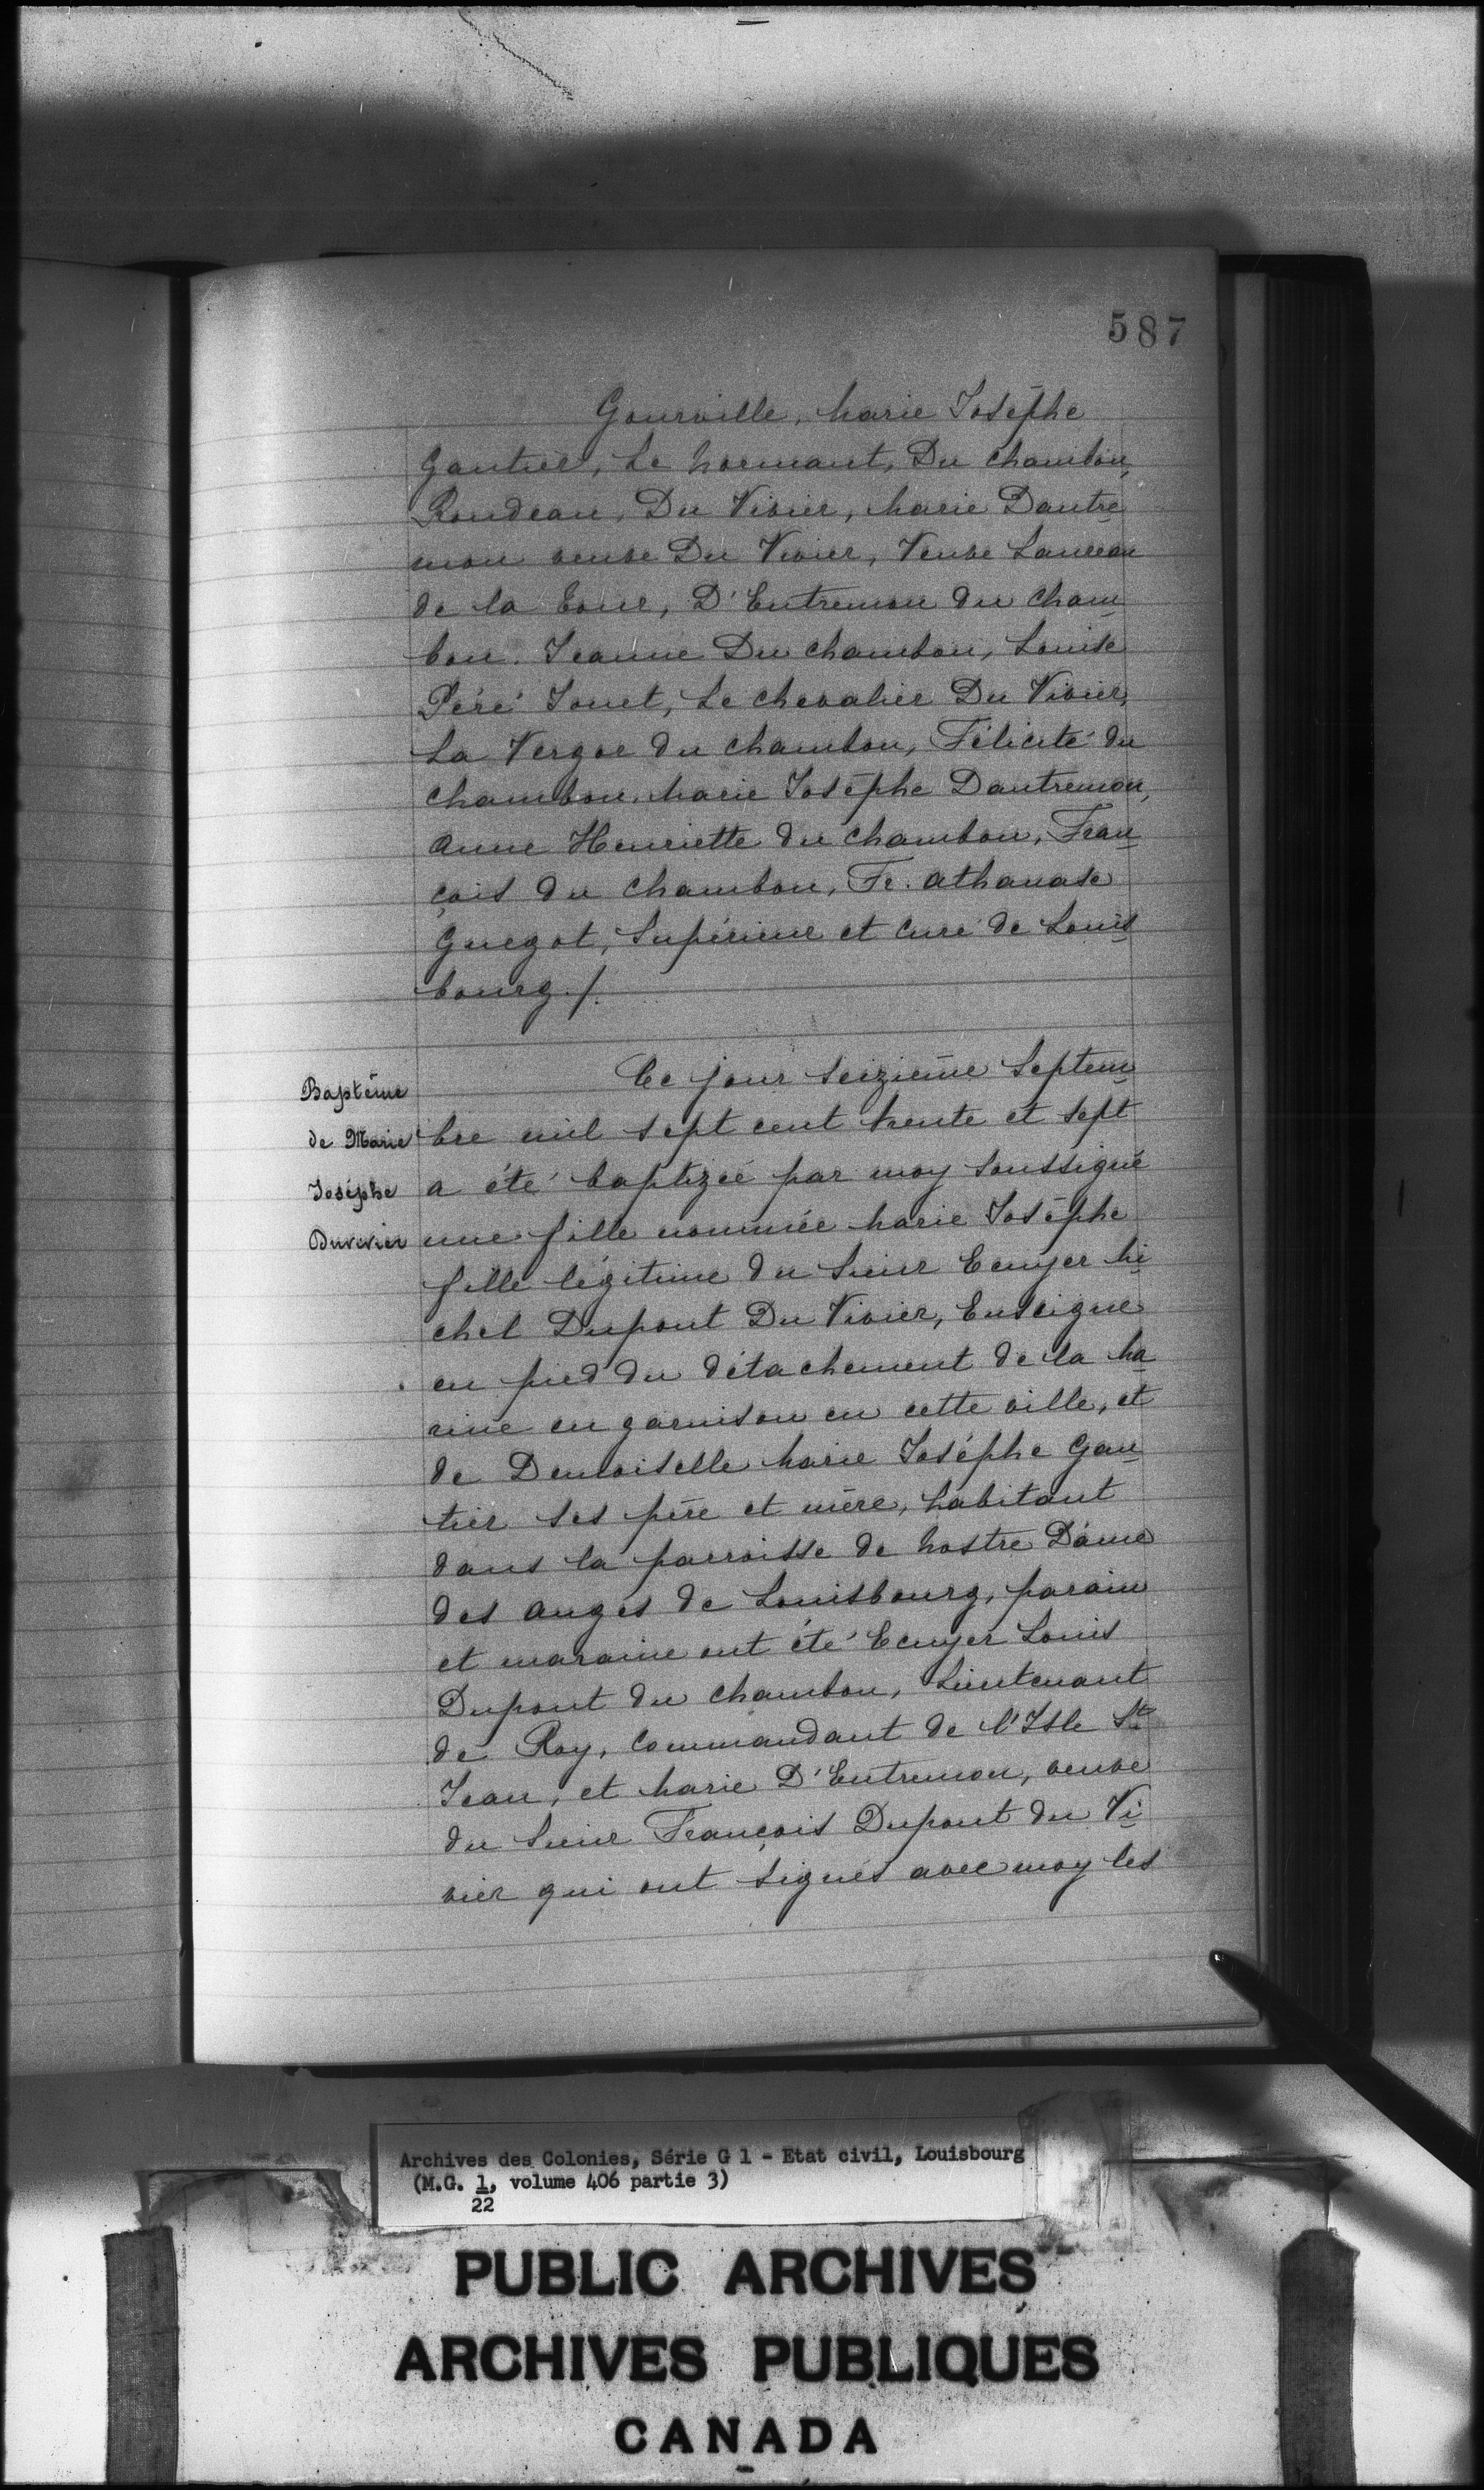 587
Gourville, Marie Josèphe
Gautier, Le Normant, Du Chambon,
Rondeau, Du Vivier, Marie Dautre
mon veuve Du Vivier, Veuve Lanneau
de la Tour, D'Entremon du Cham
bon. Jeanne Du Chambon, Louise
Péré Jouet, Le Chevalier Du Vivier,
La Vergor du Chambon, Félicité du
Chambon, Marie Josèphe Dautremon,
Anne Henriette du Chambon, Fran
çois du Chambon, Fr. Athanase
Guegot, Supérieur et Curé de Louis
bourg./.
Baptême
de Marie
Josèphe
Duvivier
Ce jour seizième Septem
bre mil sept cent trente et sept
a été baptizée par moy soussigné
une fille nommée Marie Josèphe
fille légitime du Sieur Ecuyer Mi
chel Dupont Du Vivier, Enseigne
en pied du détachement de la Ma
rine en garnison en cette ville, et
de Demoiselle Marie Josèphe Gau
tier ses père et mère, habitant
dans la parroisse de Nostre Dame
des Anges de Louisbourg, parain
et maraine ont été Ecuyer Louis
Dupont du Chambon, Lieutenant
de Roy, Commandant de l'Isle St
Jean, et Marie D'Entremon, veuve
du Sieur François Dupont du Vi
vier qui ont signés avec moy les
Archives des Colonies, Série G 1 - Etat civil, Louisbourg
(M.G. 1, volume 406 partie 3)
22
PUBLIC ARCHIVES
ARCHIVES PUBLIQUES
CANADA